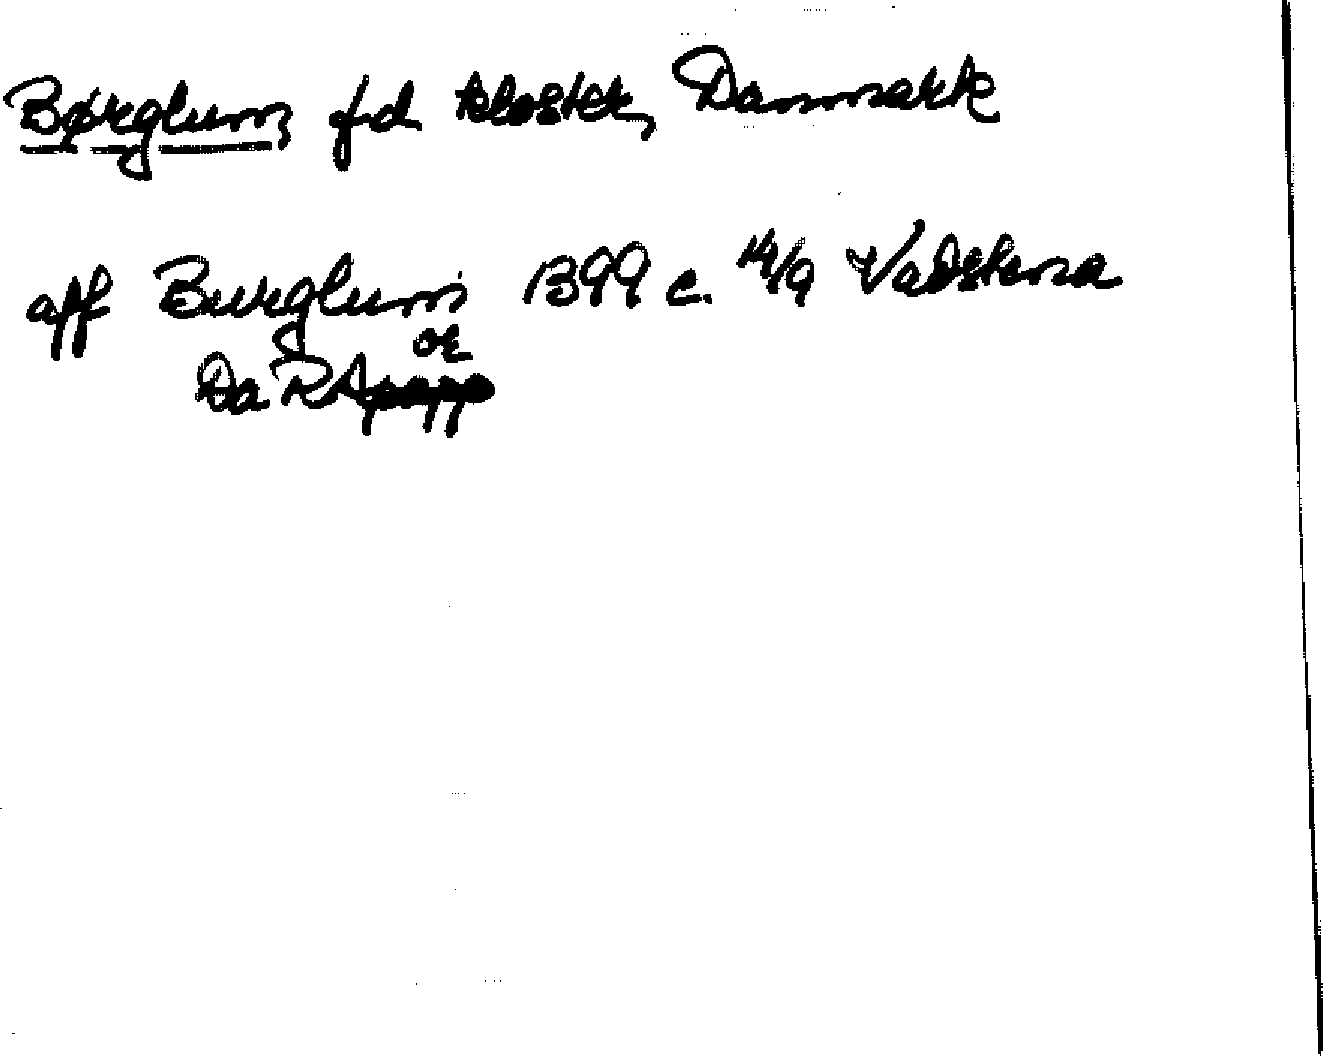 Børglum, fd kloster, Danmark
aff Burglum 1399 c. 14/9 Vadstena
or
Da RA